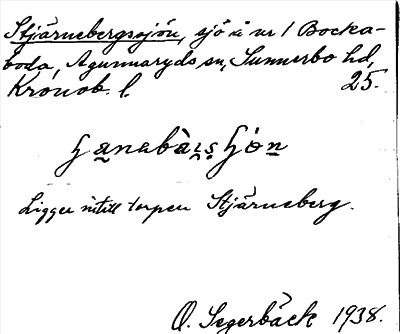 Stjärnebergssjön, sjö å nr 1 Bocka-
boda, Agunnaryds sn, Sunnerbo hd,
Kronob. l. 25.
Ligger intill torpen Stjärneberg.
O. Segerbäck 1938.